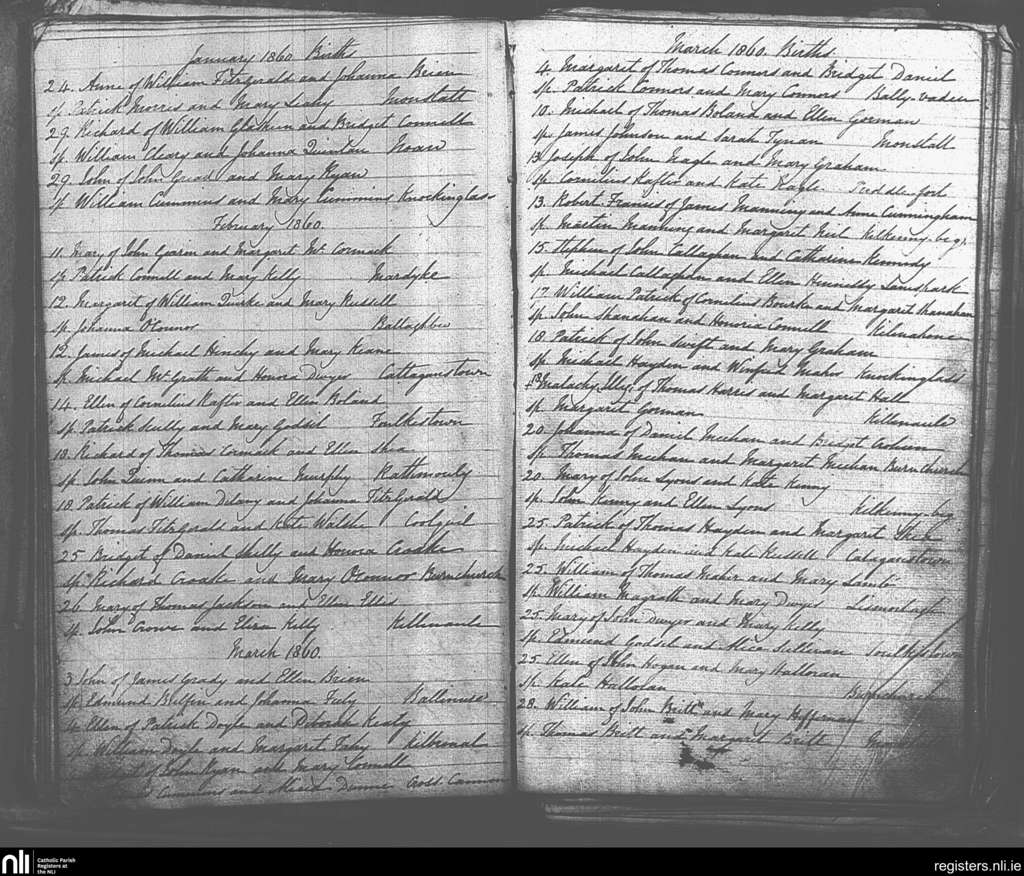 January 1860 Births
24. Anne of William Fitzgerald and Johanna Brien
Sp. Patrick Morris and Mary Leahy Monstatt
29. Richard of William Glasheen and Bridget Connell
Sp. William Cleary and Johanna Quinlan Noan
29. John of John and Mary Ryan
Sp. William Cummins and Mary Cummins Knockinglass
February 1860.
11. Mary of John Gearin and Margaret McCormack
Sp. Patrick Connell and Mary Kelly Mardyke
12. Margaret of William Quirke and Mary Russell
Sp. Johanna O'Connor
12. James of Michael Hinchy and Mary Keane
Sp. Michael McGrath and Honora Dwyer
14. Ellen of Cornelius Rafter and Ellen Boland
Sp. Patrick Scully and Mary Godsil Foulkestown
18. Richard of Thomas Cormack and Ellen Shea
Sp. John Quinn and Catharine Murphy Rathmouly
18. Patrick of William Delany and Johanna FitzGerald
Sp. Thomas FitzGerald and Kate Walshe Coolquil
25 Bridget of Daniel Skelly and Honora Croake
Sp. Richard Croake and Mary O'Connor Burnchurch
26. Mary of Thomas Jackson and Ellen Ellis
Sp. John Crowe and Eliza Kelly Killenaule
March 1860.
3 John of James Grady and Ellen Brien
Sp. Edmund and Johanna Ballinure
4. Ellen of Patrick Doyle and Deborah Keaty
Sp. William Doyle and Margaret Fahy
of John Ryan and Mary Connell
Cummins and Dunne Cross. Cannon
March 1860. Births
4. Margaret of Thomas Connors and Bridget Daniel
Sp. Patrick Connors and Mary Connors Bally-vadlea
10. Michael of Thomas Boland and Ellen Gorman
Sp. James Johnson and Sarah Tynan Monstall
13. Joseph of John Nagle and Mary Graham
Sp. Cornelius Rafter and Kate Nagle
13. Robert Francis of James Manning and Anne Cunningham
Sp. Martin Manning and Margaret Neil Kilkenny-beg
15. Stephen of John Callaghan and Catharine Kennedy
Sp. Michael Callaghan and Ellen Hennessy Lanespark
17. William Patrick of Cornelius Bourke and Margaret Shanahan
Sp. John Shanahan and Honoria Connell Kilnahone
18 Patrick of John Swift and Mary Graham
Sp. Michael Hayden and Winifred Maher Knockinglass
Malachy of Thomas Harris and Margaret Hall
Sp. Margaret Gorman Killenaule
20. Johanna of Daniel Meehan and Bridget
Sp. Thomas Meehan and Margaret Meehan Burnchurch
20. Mary of John Lyons and Kate Kenny
Sp. John Kenny and Ellen Lyons Kilkenny-beg
25. Patrick of Thomas Hayden and Margaret
Sp. Michael Hayden and Kate Russell
25. William of Thomas Maher and Mary Lamb
Sp. William Magrath and Mary Dwyer
25. Mary of John Dwyer and Mary Kelly
Sp. Edmund Godsil and Alice Sullivan Foulkstown
25. Ellen of John Hogan and Mary Halloran
Sp. Kate Halloran Burnchurch
28. William of John Britt and Mary Heffernan
Sp. Thomas Britt and Margaret Britt
nli
Catholic Parish
Registers at
the NLI
registers.nli.ie